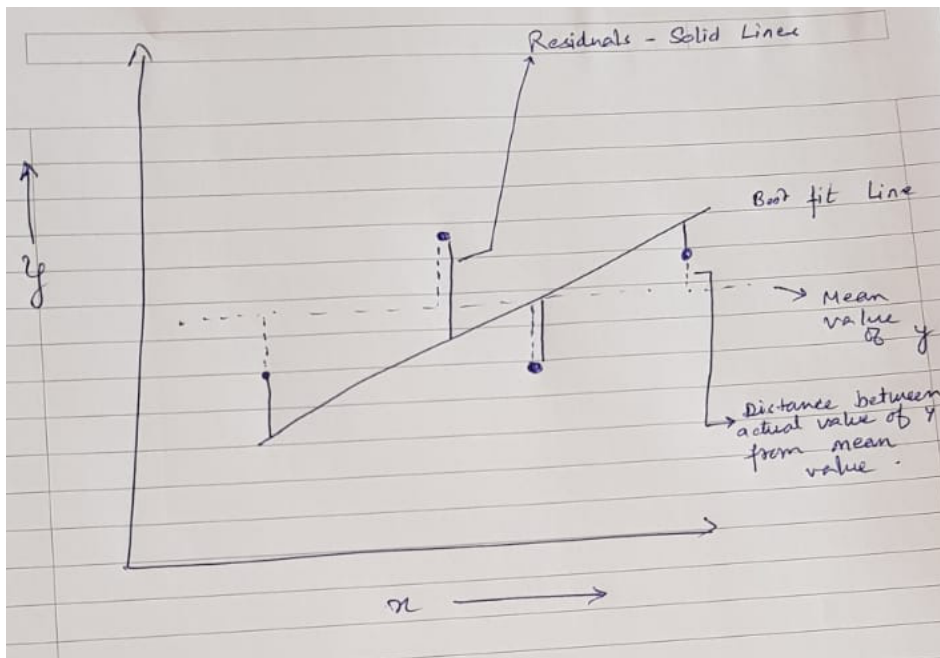 Residuals - Solid Lines
y
Best fit Line
Mean
value
of y
Distance between
actual value of Y
from mean
value.
x